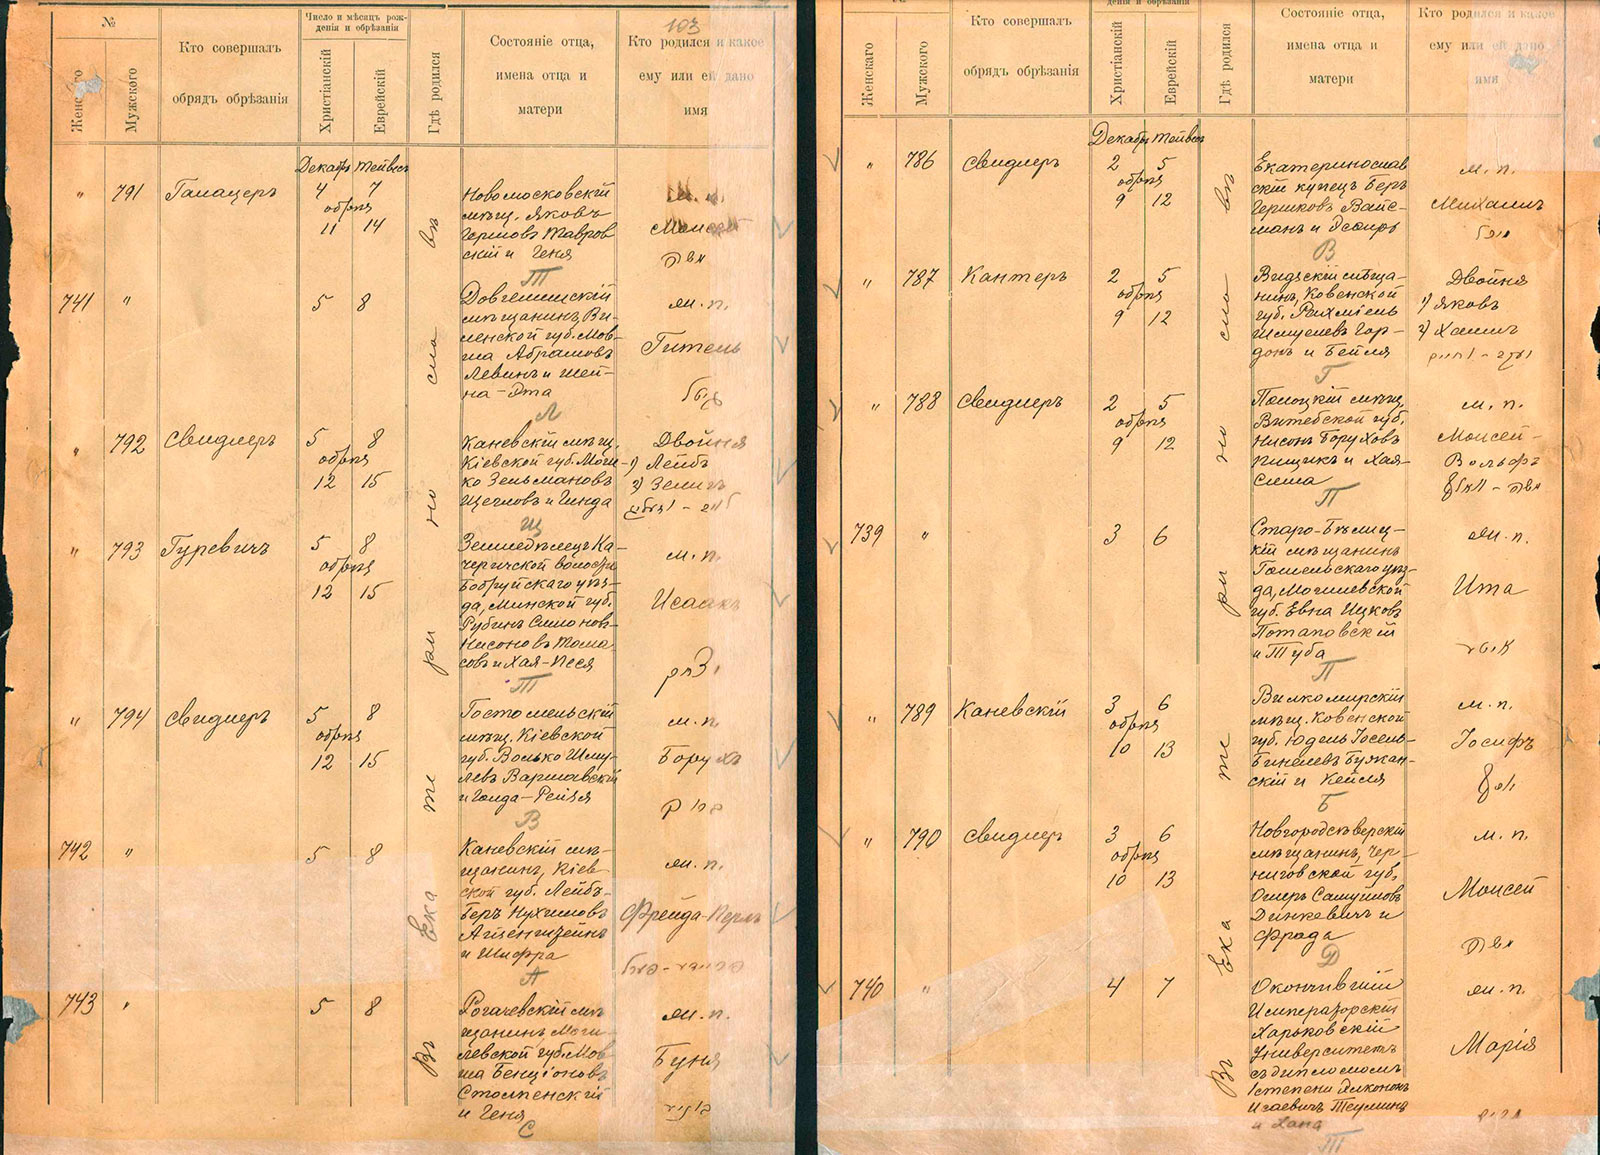 №
Женскаго
Мужского
Кто совершалъ
обрядъ обрѣзанія
Число и мѣсяцъ рож-
денія и обрѣзанія
Христіанскій
Еврейскій
Гдѣ родился
Состояніе отца,
имена отца и
матери
103
Кто родился и какое
ему или ей дано
имя
Декабрь Тейвесъ
Въ Екатеринославѣ
" 791
4 7
обрѣз
11 14
Новомосковскій
мѣщ. Яковъ
скій и Геня
м. п.
Моисей
משה
Т
741 "
5 8
мѣщанинъ, Ви-
ленской губ. Мов-
ша Абрамовъ
Левинъ и Шей-
на-
ж. п.
Гитель
Л
" 792 Свидлеръ
5 8
обрѣз
12 15
Каневскій мѣщ.
Кіевской губ.
Зельмановъ
Щегловъ и Гинда
Двойня
1) Лейбъ
2) Зелигъ
Щ
" 793 Гуревичъ
5 8
обрѣз
12 15
Земледѣлецъ Ка-
черичской волости
Бобруйскаго уѣз-
да, Минской губ.
Рубинъ Симоновъ-
Нисоновъ Тома-
совъ и Хая-Песя
м. п.
Исаакъ
יצחק
Т
" 794 Свидлеръ
5 8
обрѣз
12 15
Гостомельскій
мѣщ. Кіевской
губ. Волько Шму-
левъ Варшавскій
и Голда-Рейзя
м. п.
Борухъ
ברוך
В
742 "
5 8
Каневскій мѣ-
щанинъ, Кіев-
ской губ. Лейбъ-
Беръ Нухимовъ
и Шифра
ж. п.
Фрейда-Перль
А
743 "
5 8
Рогачевскій мѣ-
щанинъ, Моги-
левской губ. Мов-
ша Бенціоновъ
Столпенскій
и Геня
ж. п.
Буня
С
Женскаго
Мужского
Кто совершалъ
обрядъ обрѣзанія
денія и обрѣзанія
Христіанскій
Еврейскій
Гдѣ родился
Состояніе отца,
имена отца и
матери
Кто родился и какое
ему или ей дано
имя
Декабрь Тейвесъ
Въ Екатеринославѣ
" 786 Свидлеръ
2 5
обрѣз
9 12
Екатеринослав
скій купецъ Беръ
Гершковъ Вайс-
манъ и Эсфирь
м. п.
Михаилъ
В
" 787 Кантеръ
2 5
обрѣз
9 12
Видзскій мѣща-
нинъ, Ковенской
губ. Рахміель
Шмуелевъ Гор-
донъ и Бейля
Двойня
1) Яковъ
2) Хаимъ
Г
" 788 Свидлеръ
2 5
обрѣз
9 12
Полоцкій мѣщ.
Витебской губ.
Нисонъ Боруховъ
Пищикъ и Хая-
Сима
м. п.
Моисей-
Вольфъ
П
739 "
3 6
Старо-Бѣлиц-
кій мѣщанинъ
Гомельскаго уѣз-
да, Могилевской
губ. Евна Ицковъ
Потаповскій
и Туба
ж. п.
Ита
П
" 789 Каневскій
3 6
обрѣз
10 13
Вилкомирскій
мѣщ. Ковенской
губ. Юдель Іосель-
скій и Кейля
м. п.
Іосифъ
Б
" 790 Свидлеръ
3 6
обрѣз
10 13
Новгородсѣверскій
мѣщанинъ, Чер-
ниговской губ.
Ошеръ Самуиловъ
Динкевичъ и
Фрада
м. п.
Моисей
משה
Д
740 "
4 7
Окончившій
Императорскій
Харьковскій
Университетъ
съ дипломомъ
I степени
и Хана
ж. п.
Марія
Т